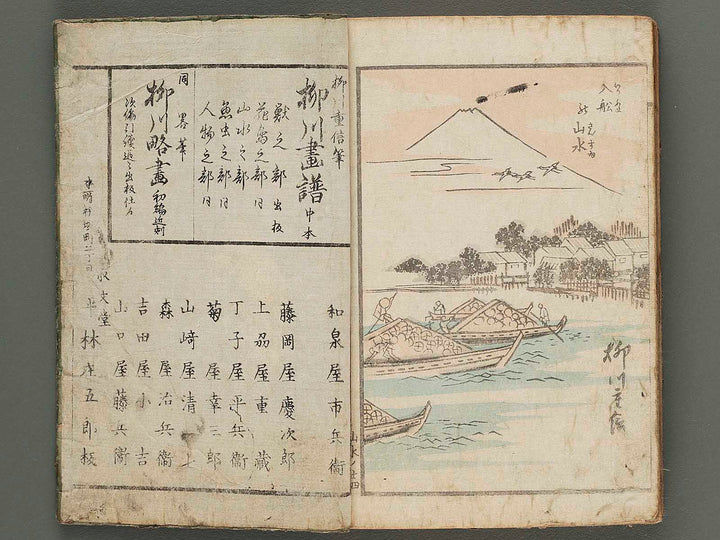 入船
山水
柳川重信
柳川重信筆
柳川畫譜 中本
獣之部 出板
花鳥之部 同
山水之部 同
魚虫之部 同
人物之部 同
同 畧筆
柳川略畫 初編近刻
次編引續追々出板仕候
和泉屋市兵衞
藤岡屋慶次郎
上州屋重藏
丁子屋平兵衞
菊屋幸三郎
山﨑屋清七
森屋治兵衞
吉田屋小吉
山口屋藤兵衞
文堂
林庄五郎板
山水ノ廿四